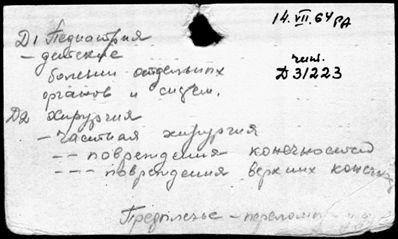 14. VII. 64 РА
Д1 Педиатрия
- детские
болезни отдельных
органов и систем.
чит.
Д 31223
Д2 хирургия
- частная хирургия
-- повреждения конечностей
--- повреждения верхних конечн
Предплечье - переломы